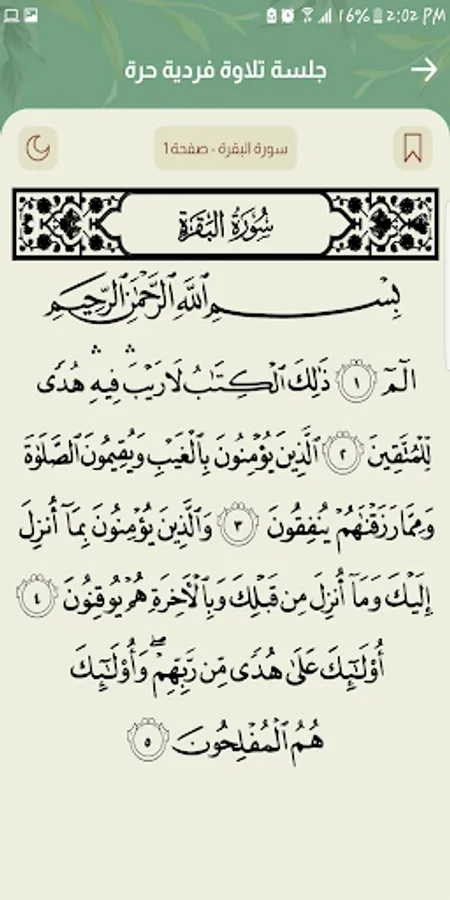 16% 2:02 PM
جلسة تلاوة فردية حرة
سورة البقرة - صفحة 1
سُورَةُ البَقَرَةِ
بِسْمِ ٱللَّهِ ٱلرَّحْمَٰنِ ٱلرَّحِيمِ
الٓمٓ ١ ذَٰلِكَ ٱلْكِتَٰبُ لَا رَيْبَ ۛ فِيهِ ۛ هُدًى
لِّلْمُتَّقِينَ ٢ ٱلَّذِينَ يُؤْمِنُونَ بِٱلْغَيْبِ وَيُقِيمُونَ ٱلصَّلَوٰةَ
وَمِمَّا رَزَقْنَٰهُمْ يُنفِقُونَ ٣ وَٱلَّذِينَ يُؤْمِنُونَ بِمَآ أُنزِلَ
إِلَيْكَ وَمَآ أُنزِلَ مِن قَبْلِكَ وَبِٱلْءَاخِرَةِ هُمْ يُوقِنُونَ ٤
أُو۟لَٰٓئِكَ عَلَىٰ هُدًى مِّن رَّبِّهِمْ ۖ وَأُو۟لَٰٓئِكَ
هُمُ ٱلْمُفْلِحُونَ ٥